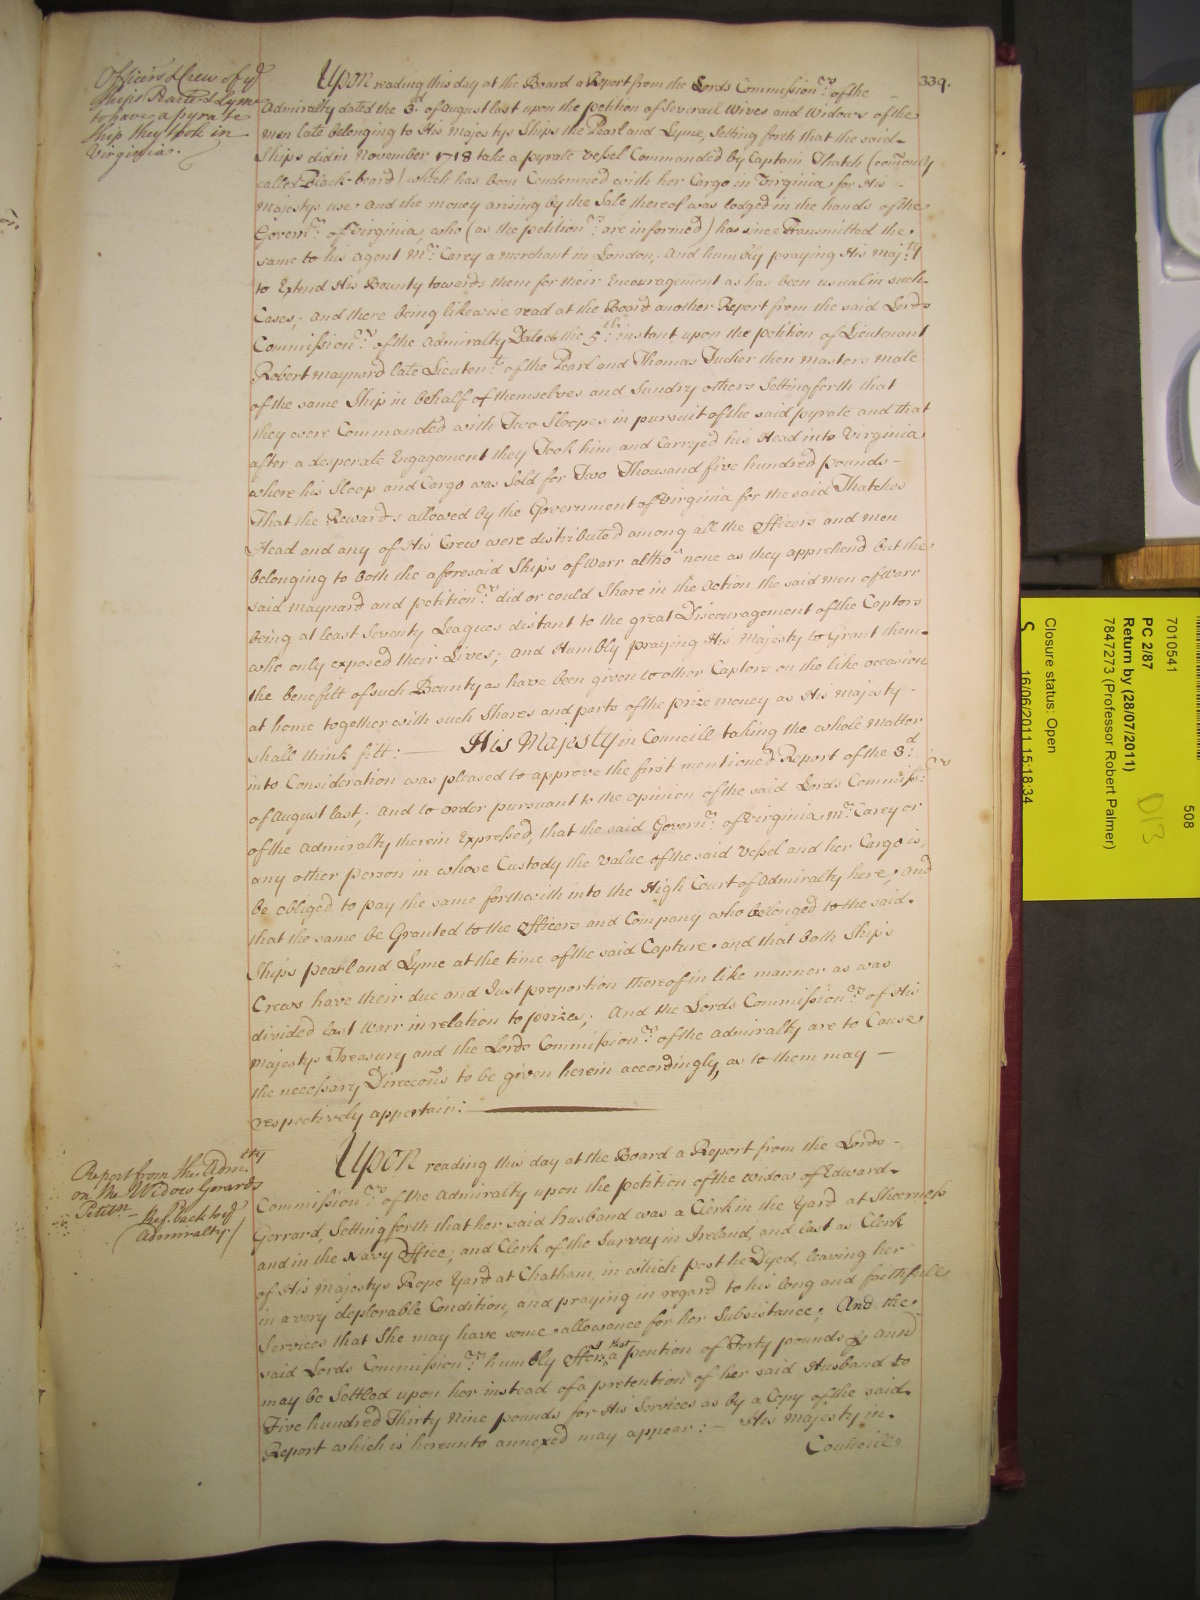 339.
Officers & Crew of ye
Ships Pearl & Lyme
to have a pyrate
Ship they took in
Virginia.
Upon reading this day at the Board a Report from the Lords Commissionrs of the
Admiralty dated the 3d of August last upon the petition of Severall Wives and Widows of the
men late belonging to His Majestys Ships the Pearl and Lyme, Setting forth that the said
Ships did in November 1718 take a pyrate Vessel Commanded by Captain Thatch (comonly
called Black-beard) which has been Condemned with her Cargo in Virginia, for His
Majestys use and the money arising by the Sale thereof was lodged in the hands of the
Governr of Virginia, who (as the petitionrs are informed) has since Transmitted the
same to his agent Mr Carey a Merchant in London, And humbly praying His Majty
to Extend His Bounty towards them for their Encouragement as has been usual in such
Cases; and there being likewise read at the Board another Report from the said Lords
Commissionrs of the Admiralty Dated the 5th instant upon the petition of Lieutenant
Robert Maynard late Lieutent of the Pearl and Thomas Tucker then Masters Mate
of the same Ship in behalf of themselves and Sundry others Setting forth that
they were Commanded with Two Sloopes in pursuit of the said pyrate and that
after a desperate Engagement they Took him and Carryed his Head into Virginia
where his Sloop and Cargo was Sold for Two Thousand five hundred pounds
That the Rewards allowed by the Government of Virginia for the said Thatches
Head and any of His Crew were distributed among all the Officers and men
belonging to Both the aforesaid Ships of Warr altho' none as they apprehend but the
said Maynard and petitionrs did or could Share in the Action the said men of Warr
being at least Seventy Leagues distant to the great Discouragement of the Captors
who only exposed their Lives; and Humbly praying His Majesty to Grant them
the benefitt of such Bounty as have been given to other Captors on the like occasion
at home together with such Shares and parts of the prize money as His Majesty
shall think fitt: His Majesty in Councill taking the whole matter
into Consideration was pleased to approve the first mentioned Report of the 3d
of August last; and to order pursuant to the opinion of the said Lords Commissrs
of the Admiralty therein Expressed, that the said Governr of Virginia, Mr Carey or
any other person in whose Custody the value of the said Vessel and her Cargo is,
be obliged to pay the same forthwith into the High Court of Admiralty here, and
that the same be Granted to the Officers and Company who belonged to the said
Ships Pearl and Lyme at the time of the said Capture and that Both Ships
Crews have their due and Just proportion thereof in like manner as was
divided last Warr in relation to prizes; And the Lords Commissionrs of His
Majestys Treasury and the Lords Commissionrs of the Admiralty are to Cause
the necessary Direccons to be given herein accordingly, as to them may
respectively appertain:
Report from the Admlty
on the Widow Gerards
Petitn Ref. back to ye
Admiralty./
Upon reading this day at the Board a Report from the Lords
Commissionrs of the Admiralty upon the petition of the widow of Edward
Gerrard, Setting forth that her said husband was a Clerk in the Yard at Sheerness
and in the Navy Office; and Clerk of the Survey in Ireland, and last as Clerk
of His Majestys Rope Yard at Chatham, in which post he Dyed, leaving her
in a very deplorable Condition, and praying in regard to his long and faithfull
Services that She may have some allowance for her Subsistance; And the
said Lords Commissionrs humbly Offering that a pention of Forty pounds p ann
may be Settled upon her instead of a pretention of her said Husband to
Five hundred Thirty Nine pounds for His Services as by a Copy of the said
Report which is hereunto annexed may appear: His Majesty in
Councill
7010541
PC 2/87
Return by (28/07/2011)
7847273 (Professor Robert Palmer)
Closure status: Open
16/06/2011 15:18:34
S
508
D13